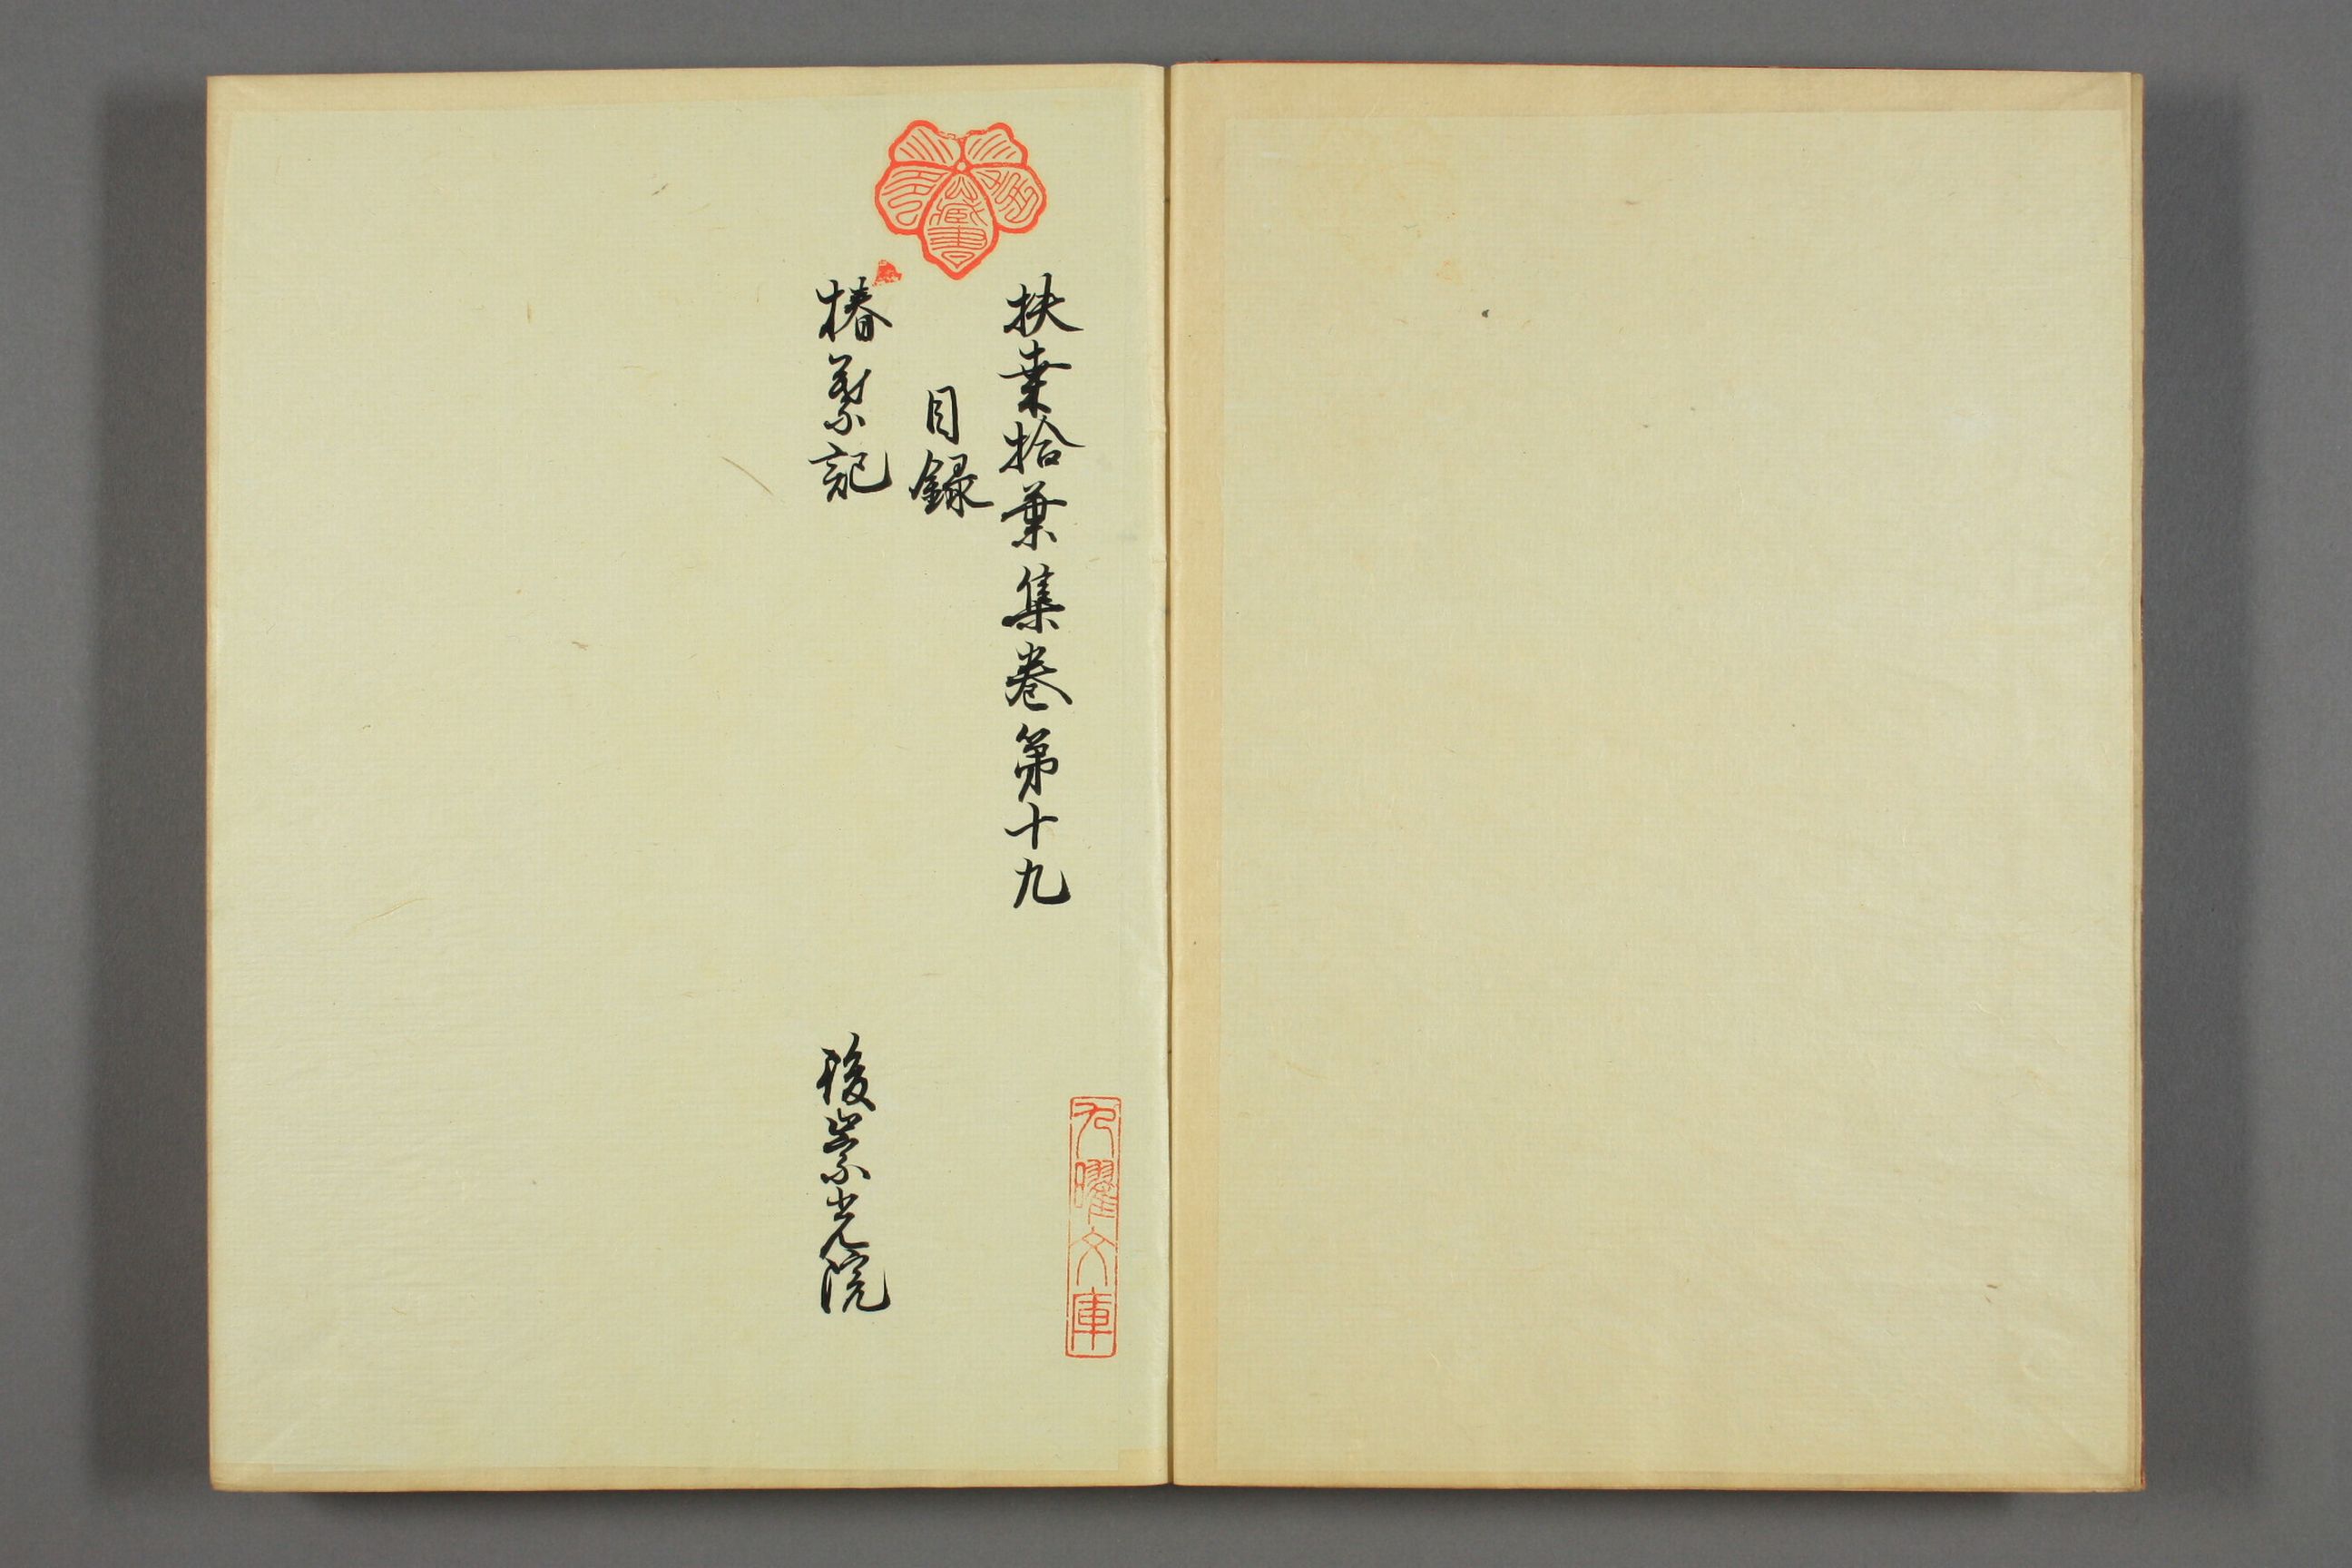 扶桑拾葉集巻第十九
目録
椿葉記
後崇光院
九曜文庫